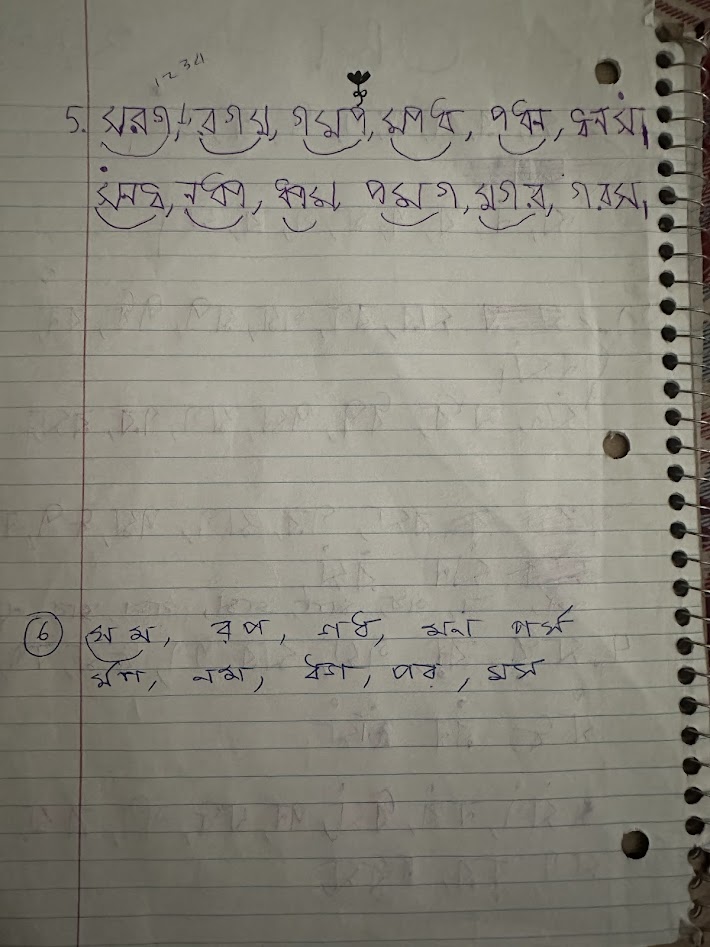 1 2 3 4
5. সরগ, রগম, গমপ, মপধ, পধন, ধনসং,
সংনধ, নধপ, ধপম, পমগ, মগর, গরস,
6 সম, রপ, গধ, মন, পর্স
র্সপ, নম, ধগ, পর, মস